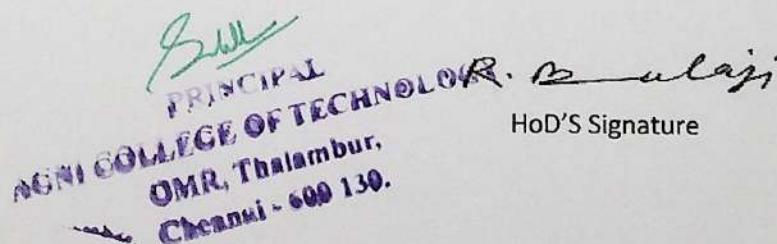 PRINCIPAL
AGNI COLLEGE OF TECHNOLOGY
OMR, Thalambur,
Chennai - 600 130.
R. Balaji
HoD'S Signature